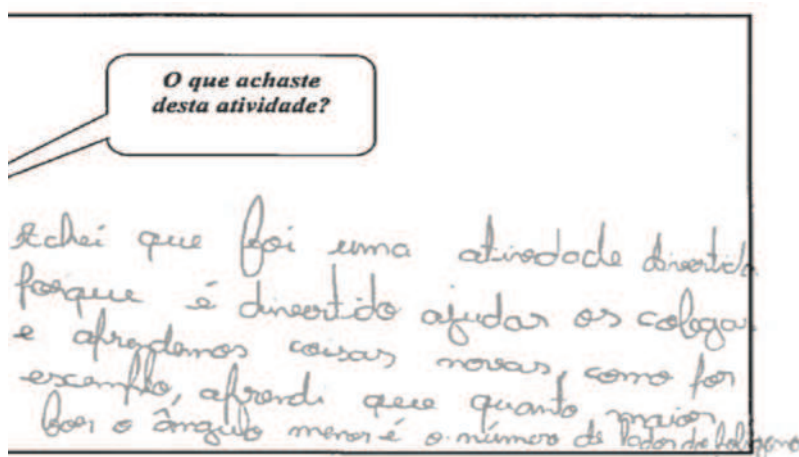 O que achaste
desta atividade?
Achei que foi uma atividade divertida
porque é divertido ajudar os colegas
e aprendemos coisas novas, como por
escemplo, aprendi que quanto maior
for o ângulo menor é o número de lados do polígono